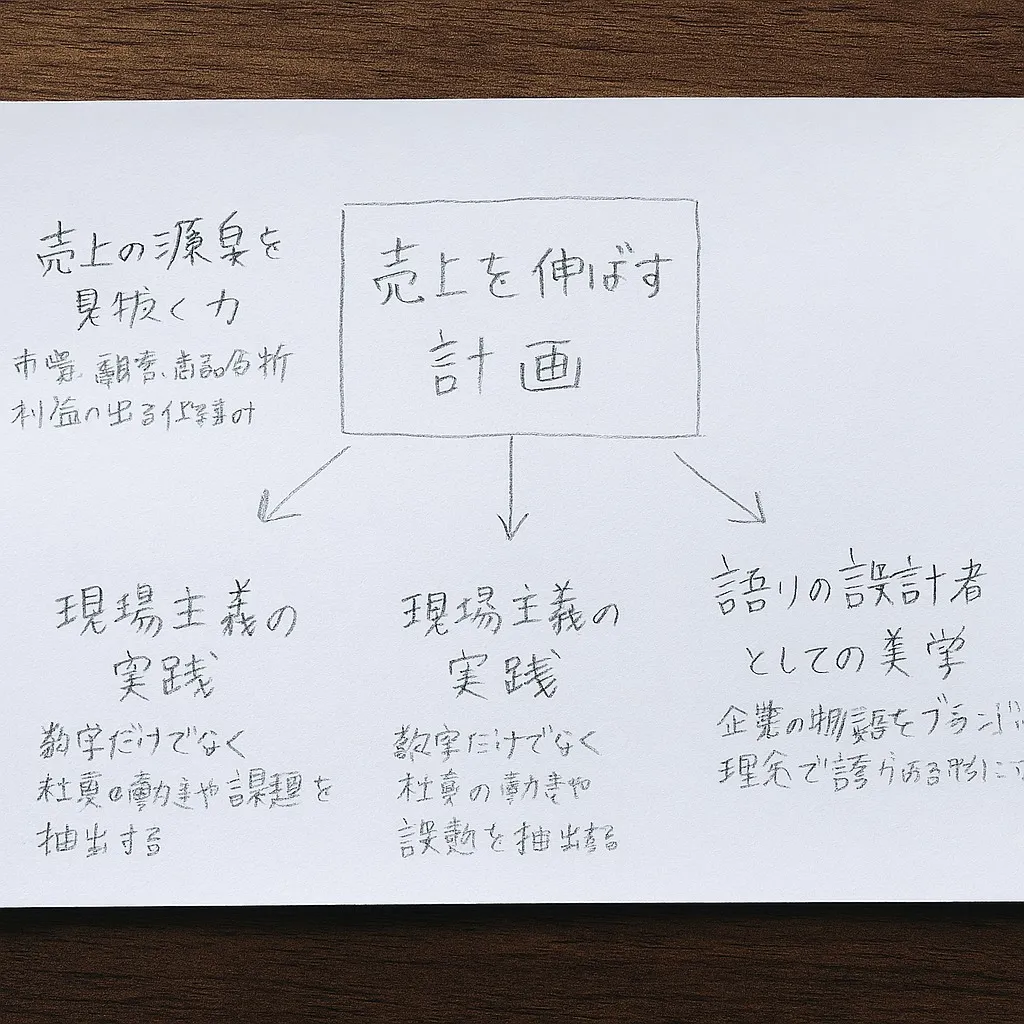 売上の源泉を
見抜く力
市場、顧客、商品分析
利益の出る仕
売上を伸ばす
計画
現場主義の
実践
数字だけでなく
社員の動きや課題を
抽出する
現場主義の
実践
数字だけでなく
社員の動きや
を抽出する
語りの設計者
としての美学
企業の物語をブランド
理念で誇りある形に